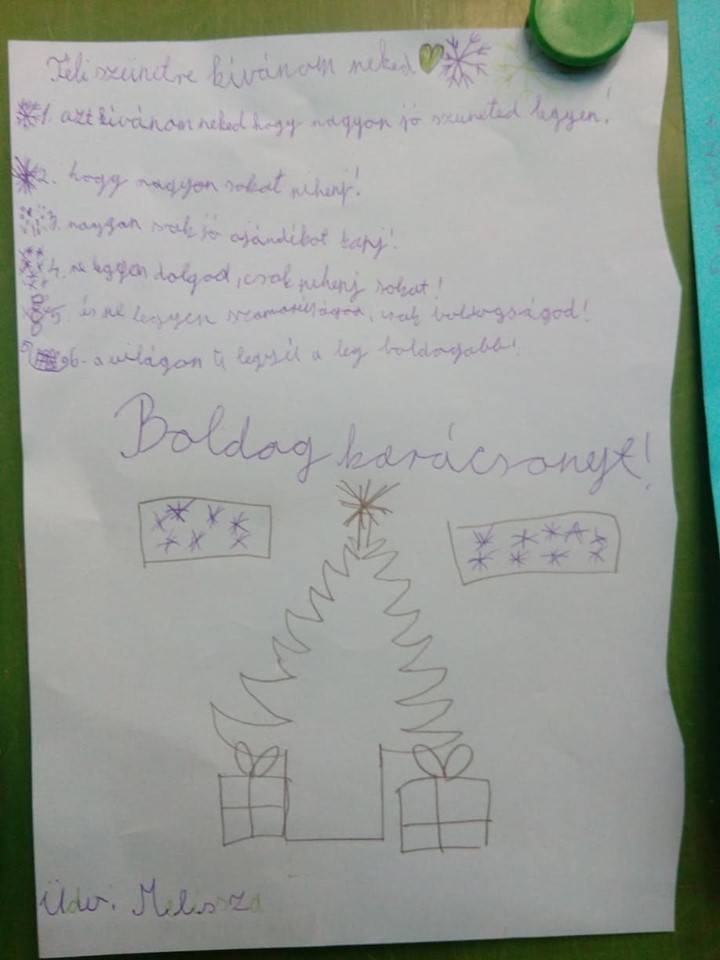 Téli szünetre kívánom neked
1. azt kívánom neked hogy nagyon jó szüneted legyen!
2. hogy nagyon sokat pihenj!
3. nagyon sok jó ajándékot kapj!
4. ne legyen dolgod, csak pihenj sokat!
5. és ne legyen szomorúságod, csak boldogságod!
6. a világon te legyél a leg boldogabb!
Boldog karácsonyt!
Üdv: Melissza